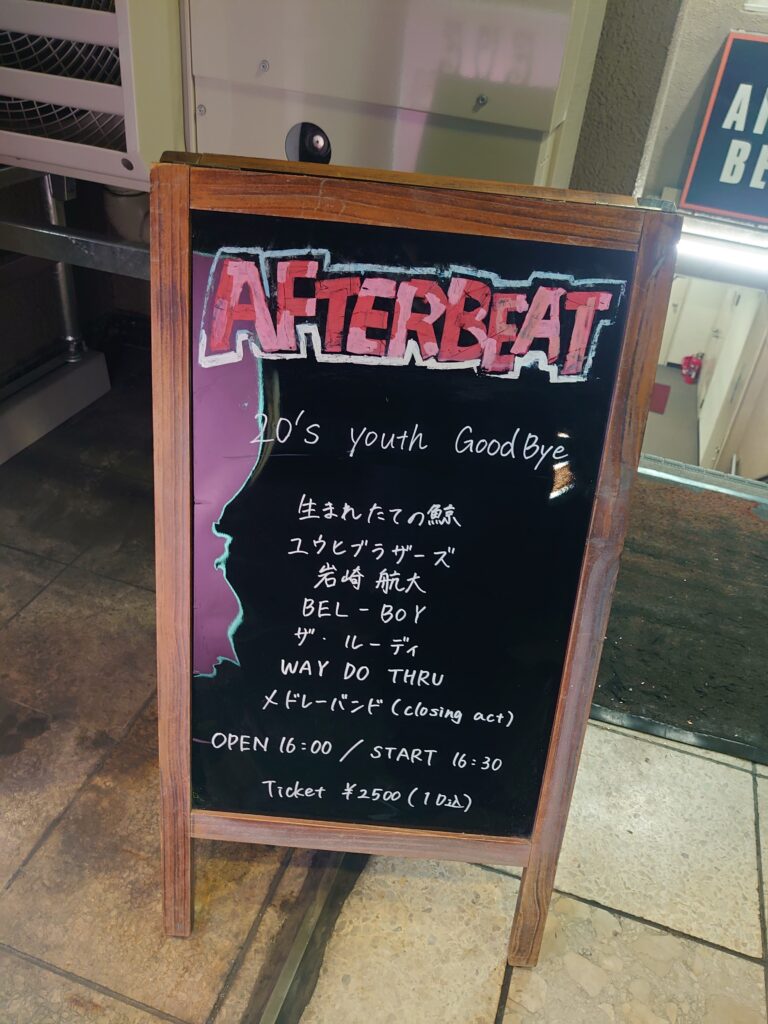 AFTERBEAT
20's youth GoodBye
生まれたての鯨
ユウヒブラザーズ
岩崎 航大
BEL-BOY
ザ・ルーディ
WAY DO THRU
メドレーバンド(closing act)
OPEN 16:00 / START 16:30
Ticket ¥2500(1D込)